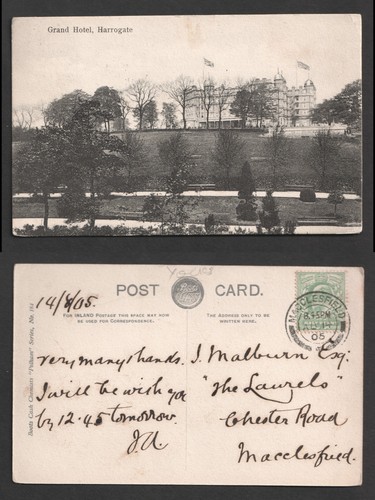 Grand Hotel, Harrogate
Yorks
POST CARD.
FOR INLAND POSTAGE THIS SPACE MAY NOW
BE USED FOR CORRESPONDENCE.
THE ADDRESS ONLY TO BE
WRITTEN HERE.
14/8/05.
very many thanks.
I will be wish you
by 12.45 tomorrow.
J.A.
J. Malburn Esq:
"The Laurels"
Chester Road
Macclesfield.
MACCLESFIELD
8.45PM
05
Boots Cash Chemists "Pelham" Series, No.